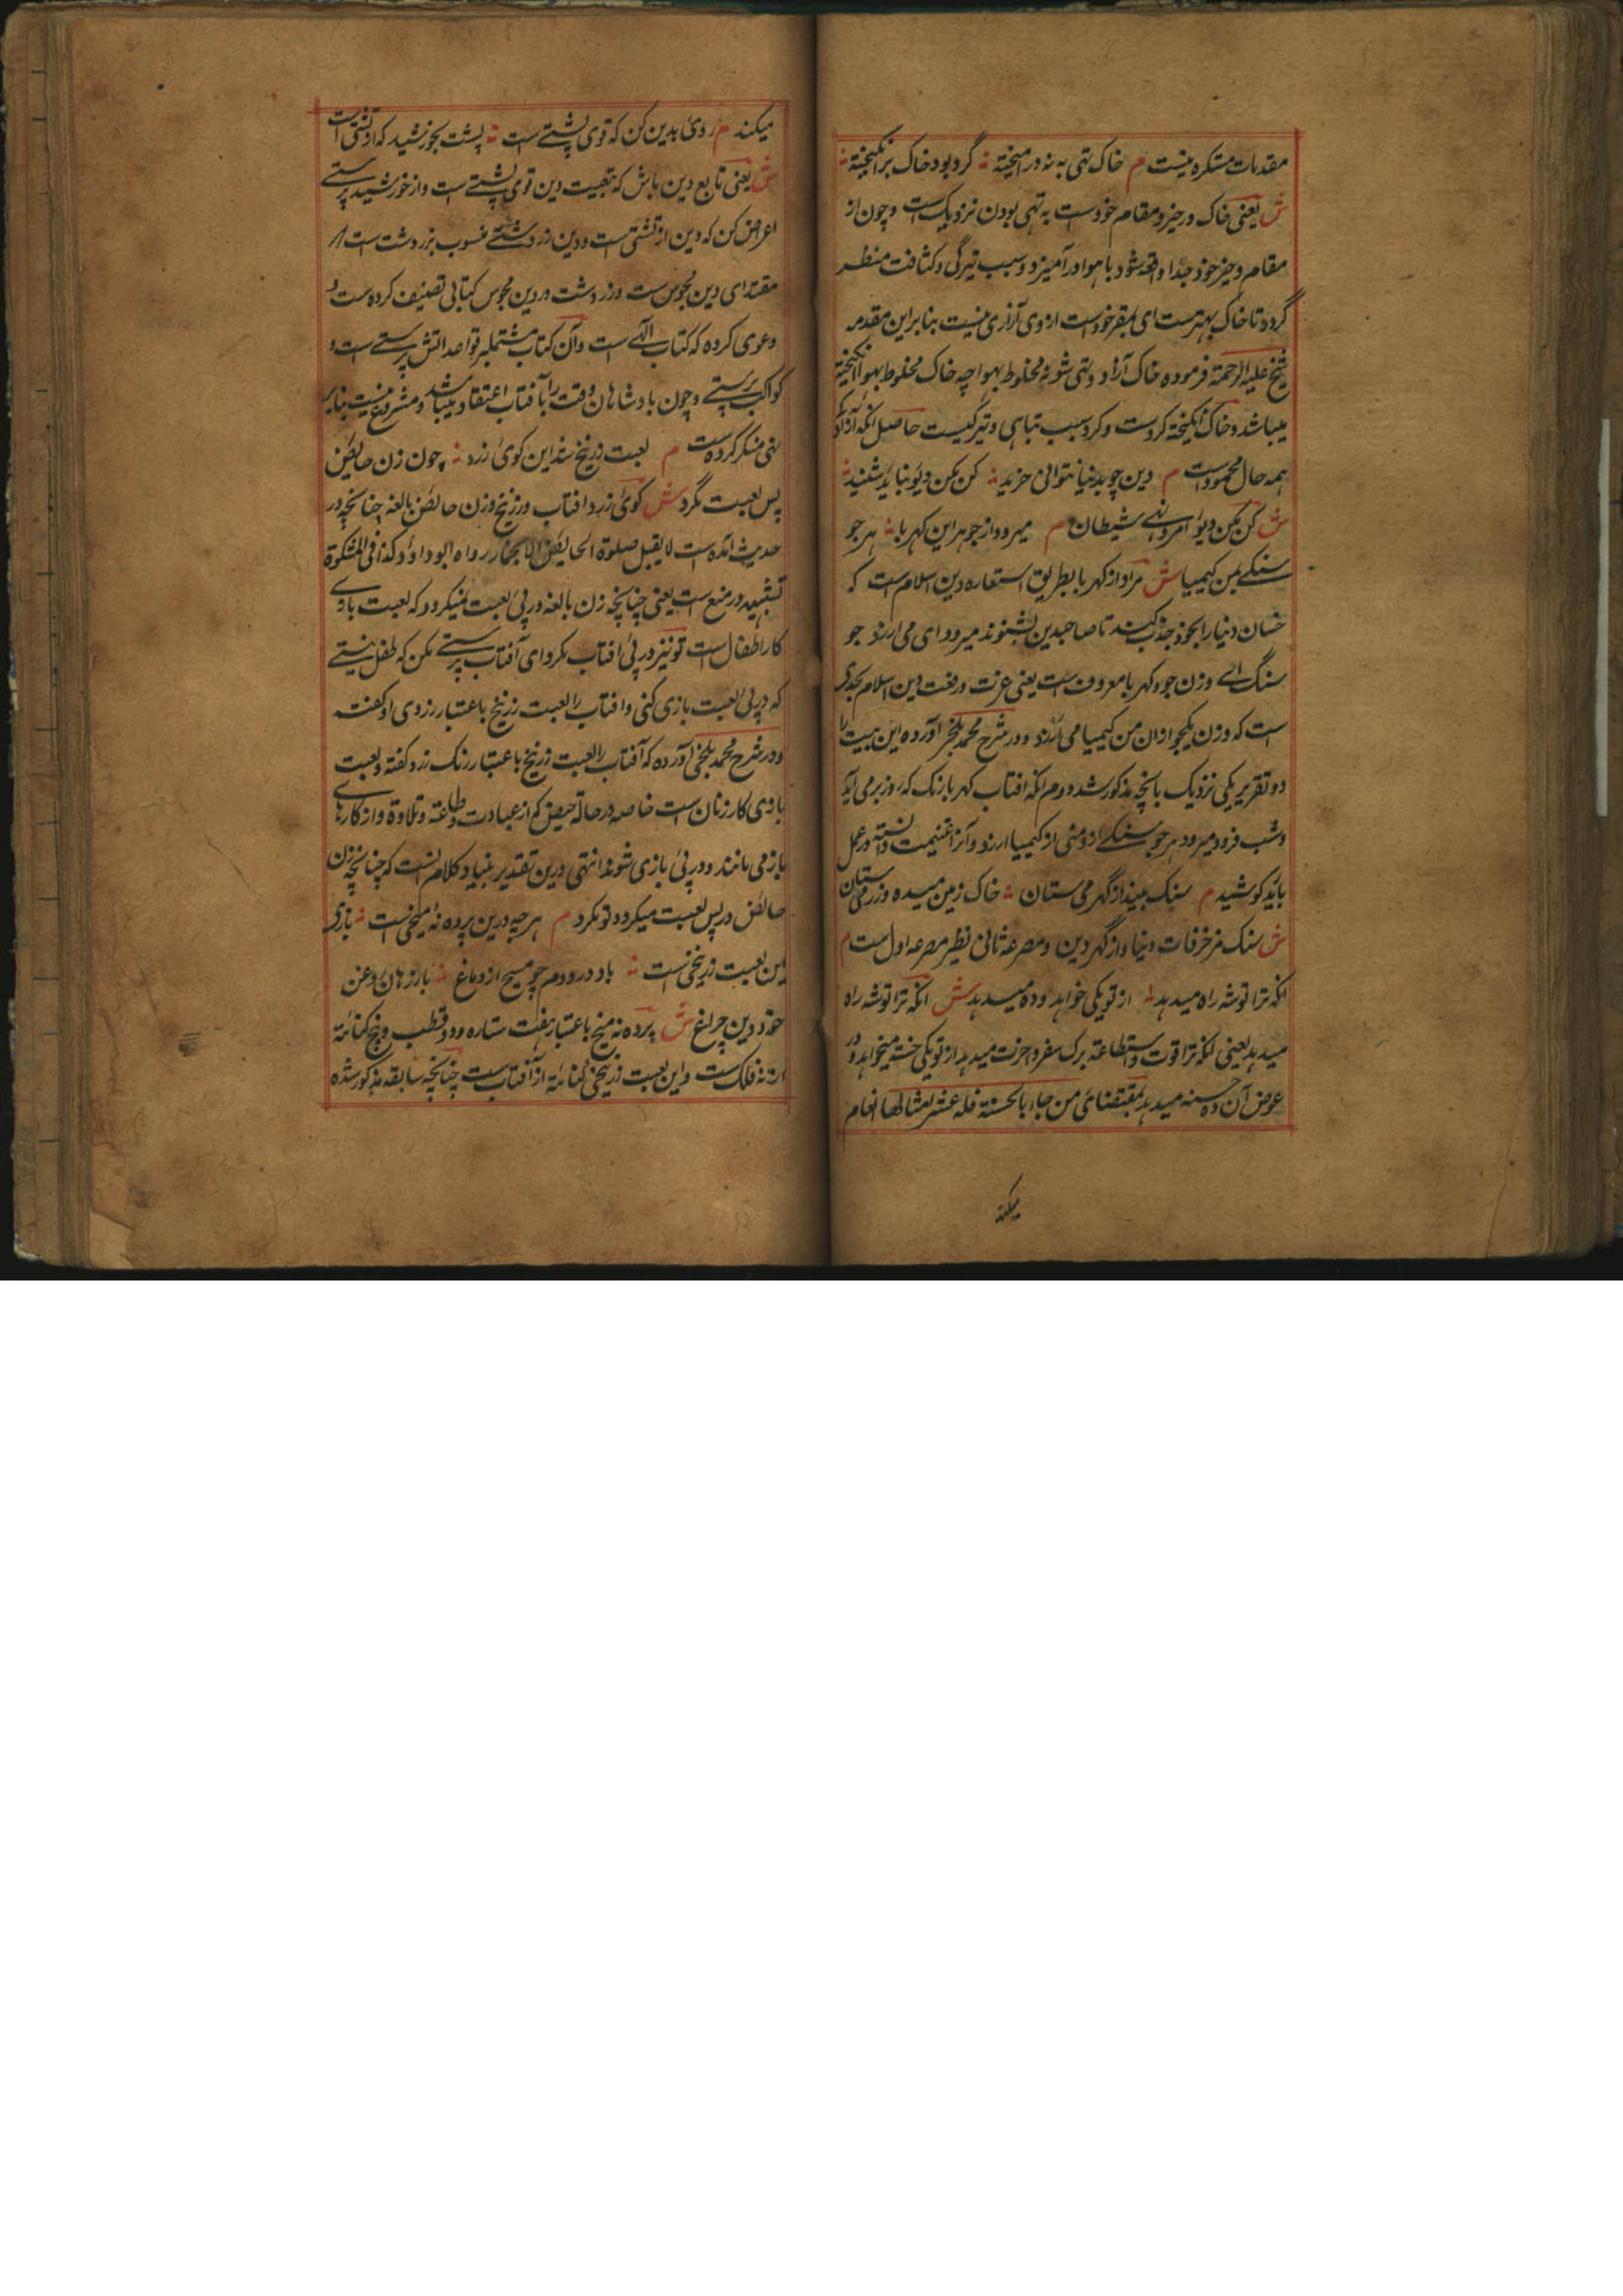 مقدمات متنکره نیست م خاک تهی به نه در آمیخته ؞ گرد بود خاک برانگیخته ؞
ش یعنی خاک در حیز و مقام خودست به تهی بودن نزدیک است و چون از
مقام و حیز خود جدا واقع شود با هوا در آمیزد و سبب تیرگی و کثافت منظر
گردد تا خاک بهترست ای بمقر خودست ازوی آزاری نیست بنابراین مقدمه
شیخ علیه الرحمة فرموده خاک آزاد و تهی شونه مخلوط بهوا چه خاک مخلوط بهوا انگیخته
میباشد و خاک انگیخته گردست و گرد سبب تباهی و تیرگیست حاصل انکه آزادگی
همه حال محمودست م دین چو بدنیا نتوانی خرید ؞ کن مکن دیو نباید شنید ؞
ش کن مکن دیو امر و نهی شیطان م میرود از جوهر این کهربا ؞ هر جو
سنگی بمن کیمیا ش مراد از کهربا بطریق استعاره دین اسلام است که
خسان دنیا را بخود جذب کند تا صاحب دین بشنوند میرود ای می ارزد جو
سنگ ای وزن جو و کهربا معروف است یعنی عزت و رفعت دین اسلام بحدی
است که وزن یکجو ازان من کیمیا می ارزد و در شرح محمد بلخی آورده این بیت را
دو تقریر یکی نزدیک بانچه مذکور شد دوم انکه افتاب کهربا رنگ که روز بر می آید
و شب فرو میرود هر جو سنگی ازو منی از کیمیا ارزد و آنرا غنیمت دانسته در عمل
باید کوشید م سنگ بینداز گهر می ستان ؞ خاک زمین میده و زر می ستان
ش سنگ مزخرفات دنیا و از گهر دین و مصرعه ثانی نظیر مصرعه اول است م
انکه ترا توشه راه میدهد ؞ از تو یکی خواهد و ده میدهد ش انکه ترا توشه راه
میدهد یعنی انکه ترا قوت و استطاعة برگ سفر آخرت میدهد از تو یکی حسنه میخواهد و در
عوض آن ده حسنه میدهد بمقتضای من جاء بالحسنة فله عشر امثالها انعام
میکند
میکند م روی بدین کن که قوی پشتی است ؞ پشت بخورشید که زردشتی است
ش یعنی تابع دین باش که تبعیت دین قوی پشتی است و از خورشید پرستی
اعراض کن که دین زردشتی است و دین زردشتی منسوب بزردشت است از
مقتدای دین مجوس است و زردشت در دین مجوس کتابی تصنیف کرده است و
دعوی کرده که کتاب الهی است و آن کتاب مشتمل بر قواعد اتش پرستی است و
کواکب پرستی و چون بادشاهان وقت را بآفتاب اعتقاد میباشد و مشروع نیست بنابر
نهی منکر کرده است م لعبت زرنیخ شد این گوی زرد ؞ چون زن حایض
پس لعبت مگرد ش گوی زرد افتاب و زرنیخ و زن حائض بالغه چنانچه در
حدیث آمده است لا یقبل صلوة الحایض الا بخمار رواه ابو داؤد کذا فی المشکوة
تشبیه در منع است یعنی چنانچه زن بالغه در پی لعبت نمیگردد که لعبت بازی
کار اطفال است تو نیز در پی افتاب مگرد ای آفتاب پرستی مکن که طفل نیستی
که در پی لعبت بازی کنی و افتاب را لعبت زرنیخ باعتبار زردی او گفته
و در شرح محمد بلخی آورده که آفتاب را لعبت زرنیخ باعتبار رنگ زرد گفته و لعبت
بازی کار زنان است خاصه در حالة حیض که از عبادت و طاعة و تلاوة و از کارهای
باز می مانند و در پی بازی شوند انتهی درین تقدیر بنیاد کلام انست که چنانچه زن
حائض در پس لعبت میگردد تو مگرد م هر چه درین پرده نه میخی است ؞ بازی
این لعبت زرنیخی است ؞ باد درو دم چو مسیح از دماغ ؞ باز رهان روغن
خود زین چراغ ش پرده نه میخ باعتبار هفت ستاره و دو قطب و نیز کنایة
از نه فلک است و این لعبت زرنیخی کنایة از آفتاب است چنانچه سابقه مذکور شده